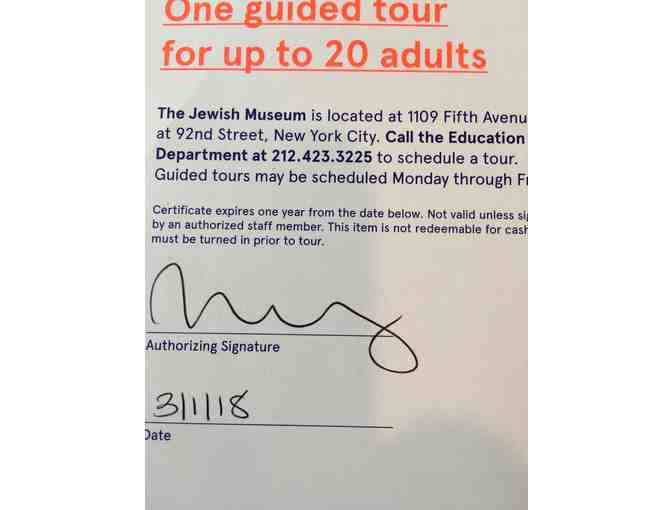 One guided tour
for up to 20 adults
The Jewish Museum is located at 1109 Fifth Avenu
at 92nd Street, New York City. Call the Education
Department at 212.423.3225 to schedule a tour.
Guided tours may be scheduled Monday through Fr
Certificate expires one year from the date below. Not valid unless si
by an authorized staff member. This item is not redeemable for cash
must be turned in prior to tour.
Authorizing Signature
3/1/18
Date